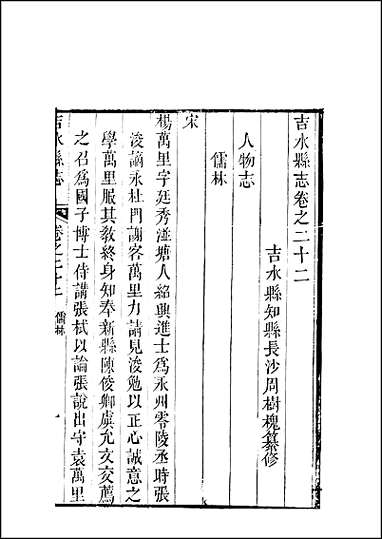 吉水縣志卷之二十二
吉水縣知縣長沙周樹槐纂修
人物志
儒林
宋
楊萬里字廷秀湴塘人紹興進士爲永州零陵丞時張
浚謫永杜門謝客萬里力請見浚勉以正心誠意之
學萬里服其教終身知奉新縣陳俊卿虞允文交薦
之召爲國子博士侍講張栻以論張說出守袁萬里
吉水縣志
卷之二十二 儒林
一